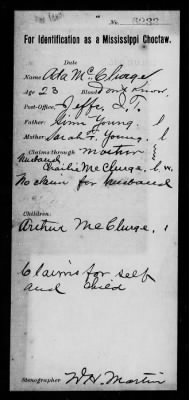 No. 3932
For Identification as a Mississippi Choctaw.
Date
Name Ada McClurge
Age 23 Blood Don't know
Post-Office, Jeffs, I.T.
Father: Jim Young, l
Mother Sarah F. Young, l
Claims through mother
husband
Charlie McClurge, l. w.
No claim for husband
Children:
Arthur McClurge, 1
Claims for self
and child
Stenographer W.H. Martin